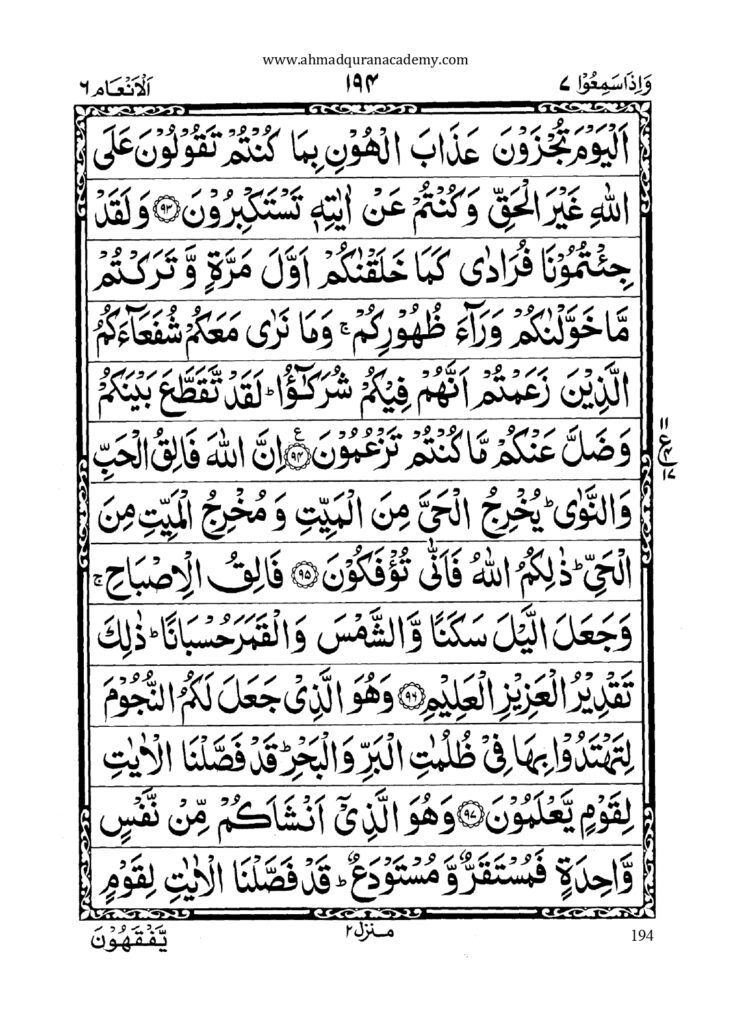 www.ahmadquranacademy.com
وَاِذَاسَمِعُوْا ٧
١٩٤
اَلْاَنْعَام ٦
اَلْيَوْمَ تُجْزَوْنَ عَذَابَ الْهُوْنِ بِمَا كُنْتُمْ تَقُوْلُوْنَ عَلَى
اللّٰهِ غَيْرَ الْحَقِّ وَكُنْتُمْ عَنْ اٰيٰتِهٖ تَسْتَكْبِرُوْنَ ﴿٩٣﴾ وَلَقَدْ
جِئْتُمُوْنَا فُرَادٰى كَمَا خَلَقْنٰكُمْ اَوَّلَ مَرَّةٍ وَّ تَرَكْتُمْ
مَّا خَوَّلْنٰكُمْ وَرَآءَ ظُهُوْرِكُمْ ۚ وَمَا نَرٰى مَعَكُمْ شُفَعَآءَكُمُ
الَّذِيْنَ زَعَمْتُمْ اَنَّهُمْ فِيْكُمْ شُرَكٰٓؤُا ؕ لَقَدْ تَّقَطَّعَ بَيْنَكُمْ
وَضَلَّ عَنْكُمْ مَّا كُنْتُمْ تَزْعُمُوْنَ ﴿٩٤﴾ ع اِنَّ اللّٰهَ فَالِقُ الْحَبِّ
١١ ع ٤ ١٧
وَالنَّوٰى ؕ يُخْرِجُ الْحَيَّ مِنَ الْمَيِّتِ وَ مُخْرِجُ الْمَيِّتِ مِنَ
الْحَيِّ ؕ ذٰلِكُمُ اللّٰهُ فَاَنّٰى تُؤْفَكُوْنَ ﴿٩٥﴾ فَالِقُ الْاِصْبَاحِ ۚ
وَجَعَلَ الَّيْلَ سَكَنًا وَّالشَّمْسَ وَالْقَمَرَ حُسْبَانًا ؕ ذٰلِكَ
تَقْدِيْرُ الْعَزِيْزِ الْعَلِيْمِ ﴿٩٦﴾ وَهُوَ الَّذِيْ جَعَلَ لَكُمُ النُّجُوْمَ
لِتَهْتَدُوْا بِهَا فِيْ ظُلُمٰتِ الْبَرِّ وَالْبَحْرِ ؕ قَدْ فَصَّلْنَا الْاٰيٰتِ
لِقَوْمٍ يَّعْلَمُوْنَ ﴿٩٧﴾ وَهُوَ الَّذِيْٓ اَنْشَاَكُمْ مِّنْ نَّفْسٍ
وَّاحِدَةٍ فَمُسْتَقَرٌّ وَّ مُسْتَوْدَعٌ ؕ قَدْ فَصَّلْنَا الْاٰيٰتِ لِقَوْمٍ
194
منزل ٢
يَّفْقَهُوْنَ